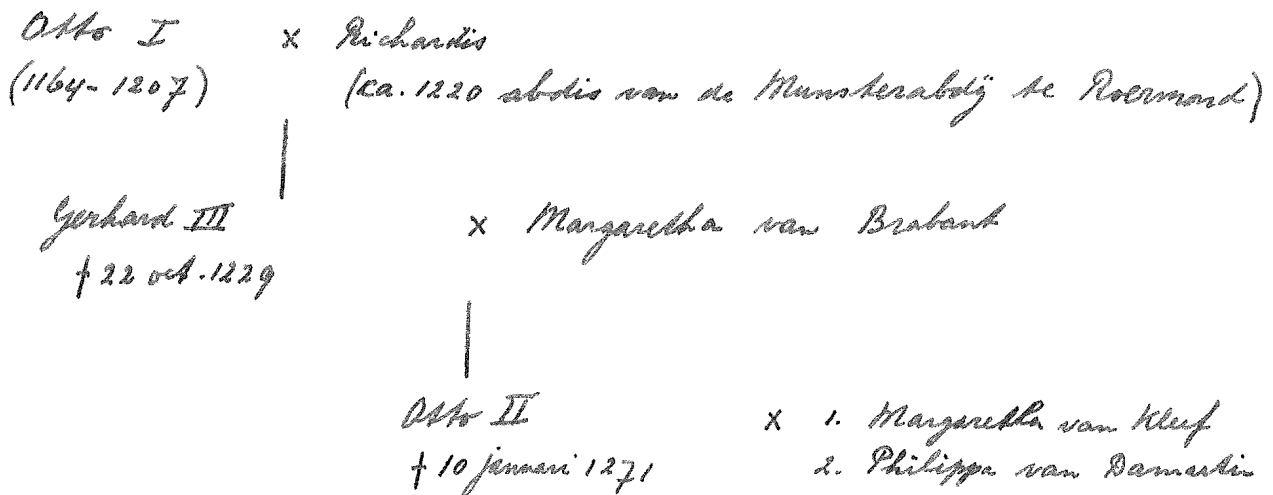 Otto I x Richardis
(1164-1207) (ca. 1220 abdis van de Munsterabdij te Roermond)
Gerhard III x Margaretha van Brabant
† 22 oct. 1229
Otto II x 1. Margaretha van Kleef
† 10 januari 1271 2. Philippa van Damartin